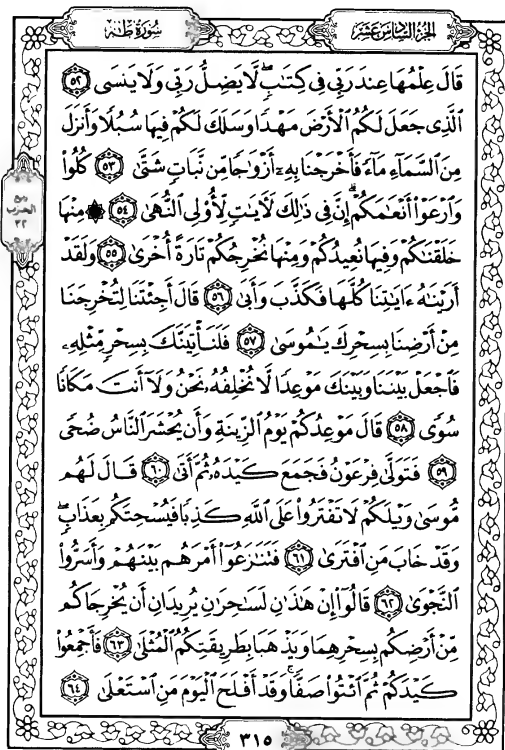 سُورَةُ طه
الجُزْءُ السَّادِسَ عَشَرَ
قَالَ عِلْمُهَا عِندَ رَبِّى فِى كِتَٰبٍۖ لَّا يَضِلُّ رَبِّى وَلَا يَنسَى ٥٢
ٱلَّذِى جَعَلَ لَكُمُ ٱلْأَرْضَ مَهْدًا وَسَلَكَ لَكُمْ فِيهَا سُبُلًا وَأَنزَلَ
مِنَ ٱلسَّمَآءِ مَآءً فَأَخْرَجْنَا بِهِۦٓ أَزْوَٰجًا مِّن نَّبَاتٍ شَتَّىٰ ٥٣ كُلُوا۟
وَٱرْعَوْا۟ أَنْعَٰمَكُمْۗ إِنَّ فِى ذَٰلِكَ لَءَايَٰتٍ لِّأُو۟لِى ٱلنُّهَىٰ ٥٤ ۞ مِنْهَا
خَلَقْنَٰكُمْ وَفِيهَا نُعِيدُكُمْ وَمِنْهَا نُخْرِجُكُمْ تَارَةً أُخْرَىٰ ٥٥ وَلَقَدْ
أَرَيْنَٰهُ ءَايَٰتِنَا كُلَّهَا فَكَذَّبَ وَأَبَىٰ ٥٦ قَالَ أَجِئْتَنَا لِتُخْرِجَنَا
مِنْ أَرْضِنَا بِسِحْرِكَ يَٰمُوسَىٰ ٥٧ فَلَنَأْتِيَنَّكَ بِسِحْرٍ مِّثْلِهِۦ
فَٱجْعَلْ بَيْنَنَا وَبَيْنَكَ مَوْعِدًا لَّا نُخْلِفُهُۥ نَحْنُ وَلَآ أَنتَ مَكَانًا
سُوًى ٥٨ قَالَ مَوْعِدُكُمْ يَوْمُ ٱلزِّينَةِ وَأَن يُحْشَرَ ٱلنَّاسُ ضُحًى
٥٩ فَتَوَلَّىٰ فِرْعَوْنُ فَجَمَعَ كَيْدَهُۥ ثُمَّ أَتَىٰ ٦٠ قَالَ لَهُم
مُّوسَىٰ وَيْلَكُمْ لَا تَفْتَرُوا۟ عَلَى ٱللَّهِ كَذِبًا فَيُسْحِتَكُم بِعَذَابٍۖ
وَقَدْ خَابَ مَنِ ٱفْتَرَىٰ ٦١ فَتَنَٰزَعُوٓا۟ أَمْرَهُم بَيْنَهُمْ وَأَسَرُّوا۟
ٱلنَّجْوَىٰ ٦٢ قَالُوٓا۟ إِنْ هَٰذَٰنِ لَسَٰحِرَٰنِ يُرِيدَانِ أَن يُخْرِجَاكُم
مِّنْ أَرْضِكُم بِسِحْرِهِمَا وَيَذْهَبَا بِطَرِيقَتِكُمُ ٱلْمُثْلَىٰ ٦٣ فَأَجْمِعُوا۟
كَيْدَكُمْ ثُمَّ ٱئْتُوا۟ صَفًّاۚ وَقَدْ أَفْلَحَ ٱلْيَوْمَ مَنِ ٱسْتَعْلَىٰ ٦٤
ربع
الحزب
٣٢
٣١٥